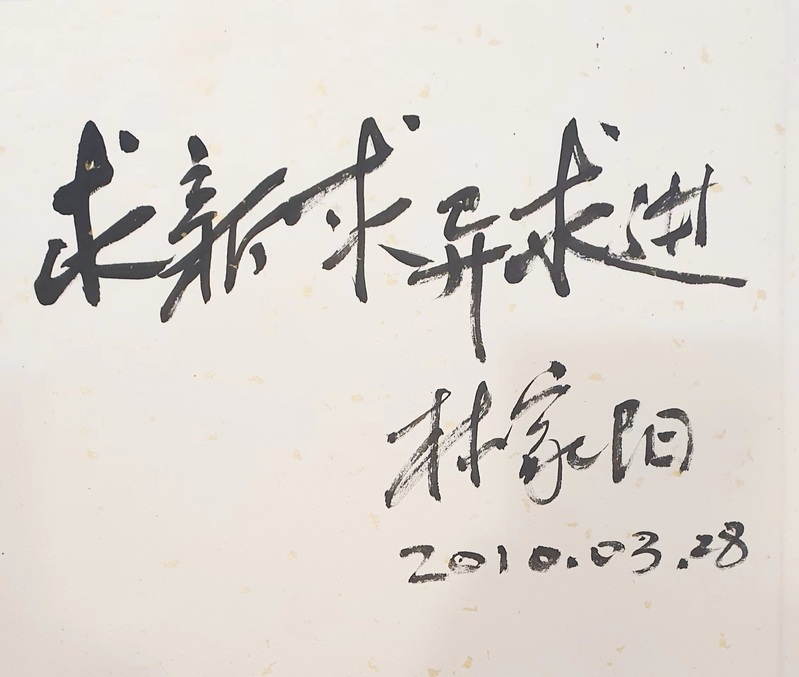 求新求异求进
林家阳
2010.03.28